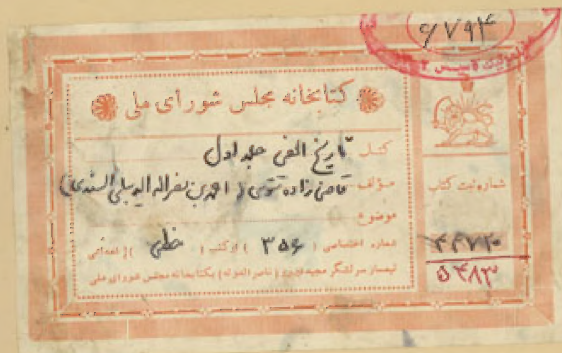 ۹۷۹۴
کتابخانه مجلس شورای ملی
کتاب تاریخ الفی جلد اول
مؤلف قاضی زاده تتوی (احمد بن نصراله الدیبلی السندی)
موضوع
شماره اختصاصی (۳۵۶) از کتب (خطی) اهدائی
تیمسار سرلشکر مجید فیروز (ناصرالدوله) بکتابخانه مجلس شورای ملی
شماره ثبت کتاب
۵۴۸۳